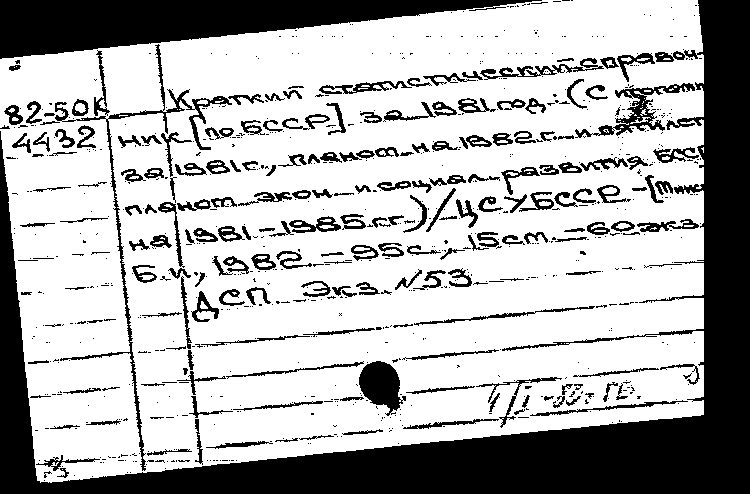 82-50К Краткий статистический справоч-
4432 ник [по БССР] за 1981 год: (С итогами
за 1981 г., планом на 1982 г. и пятилет
планом экон. и социал. развития БССР
на 1981-1985 гг.)/ЦСУ БССР -[Минс
Б.и., 1982. -95с.; 15см. -60экз.
ДСП. Экз. №53